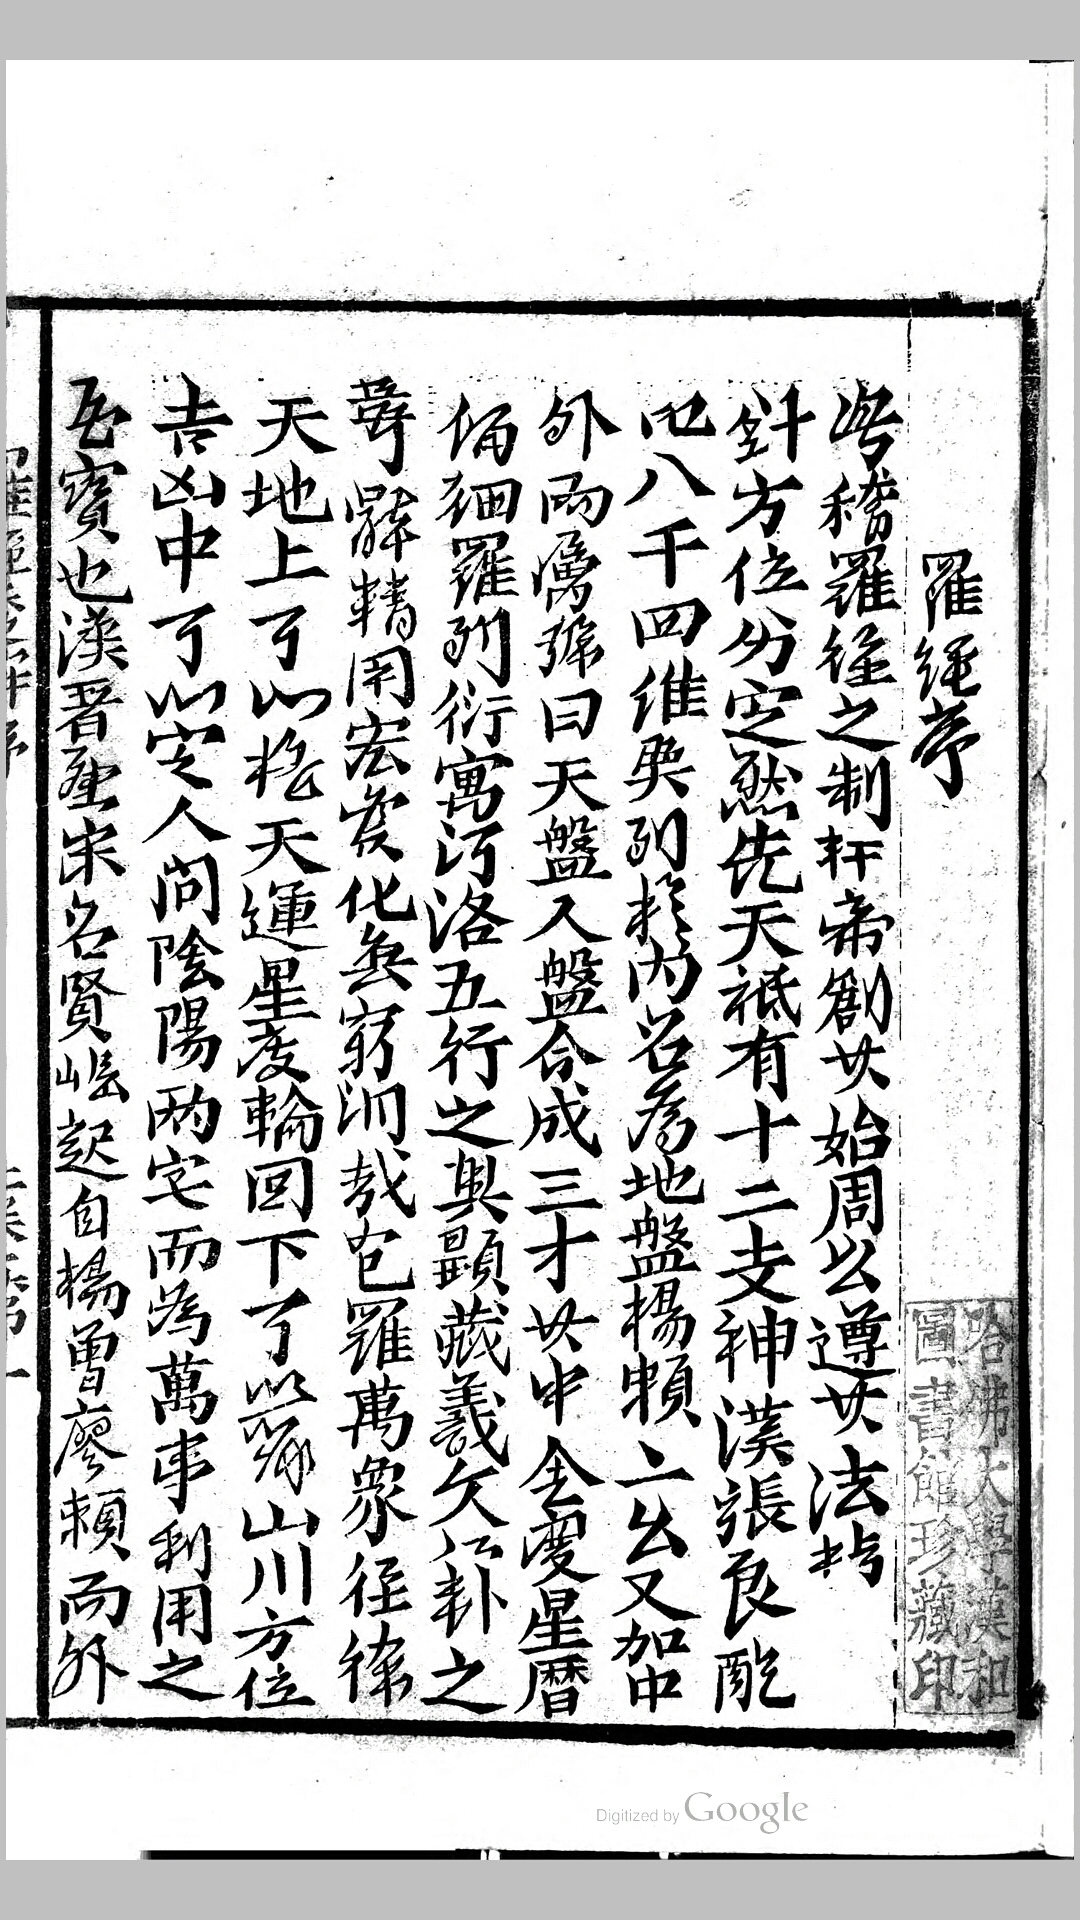 羅經序
嘗稽羅經之制軒帝創其始周公遵其法指
針方位分定然先天祗有十二支神漢張良配
八干四維與列於內名為地盤楊賴二公又加中
外兩層號曰天盤人盤合成三才其中全度星曆
備細羅列衍寓河洛五行之奧顯藏羲文八卦之
辭精用宏變化無窮洞哉包羅萬象經
天地上可以格天運星度輪回下可以辨山川方位
吉凶中可以定人間陰陽兩宅而為萬事利用之
寶也漢晉唐宋名賢崛起自楊曾廖賴而外
哈佛大學漢和
圖書館珍藏印
Digitized by Google